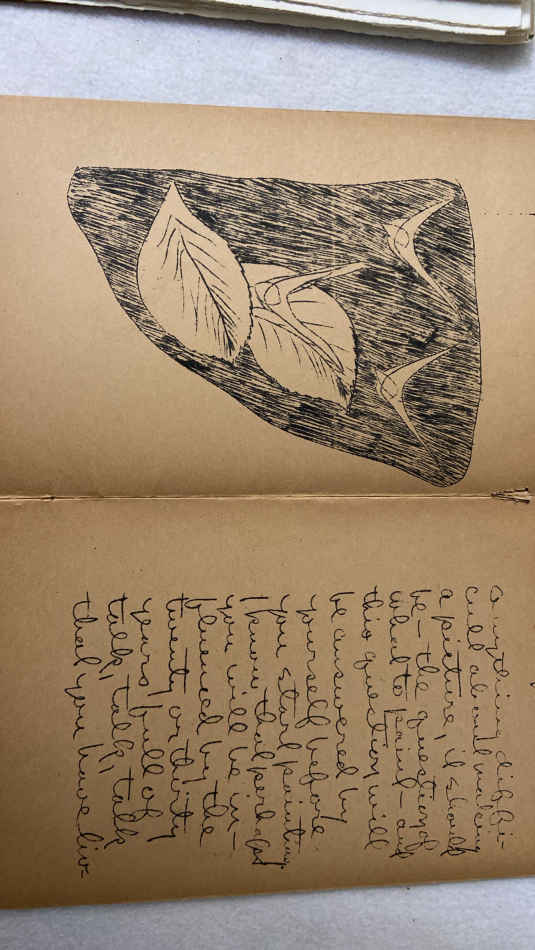 anything diffi-
cult about making
a picture, it should
be - the question of
what to paint - and
this question will
be answered by
yourself before
you start painting.
I know that perhaps
you will be in-
fluenced by the
twenty or thirty
years full of
talk, talk, talk
that you have liv-